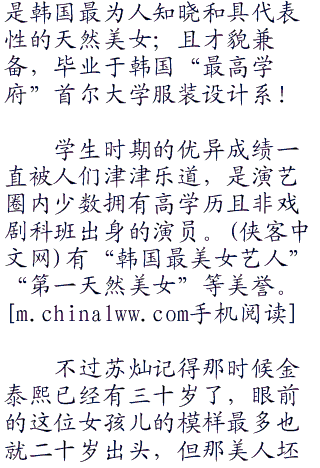 是韩国最为人知晓和具代表
性的天然美女；且才貌兼
备，毕业于韩国“最高学
府”首尔大学服装设计系！
学生时期的优异成绩一
直被人们津津乐道，是演艺
圈内少数拥有高学历且非戏
剧科班出身的演员。(侠客中
文网)有“韩国最美女艺人”
“第一天然美女”等美誉。
[m.china1ww.com手机阅读]
不过苏灿记得那时候金
泰熙已经有三十岁了，眼前
的这位女孩儿的模样最多也
就二十岁出头，但那美人坯